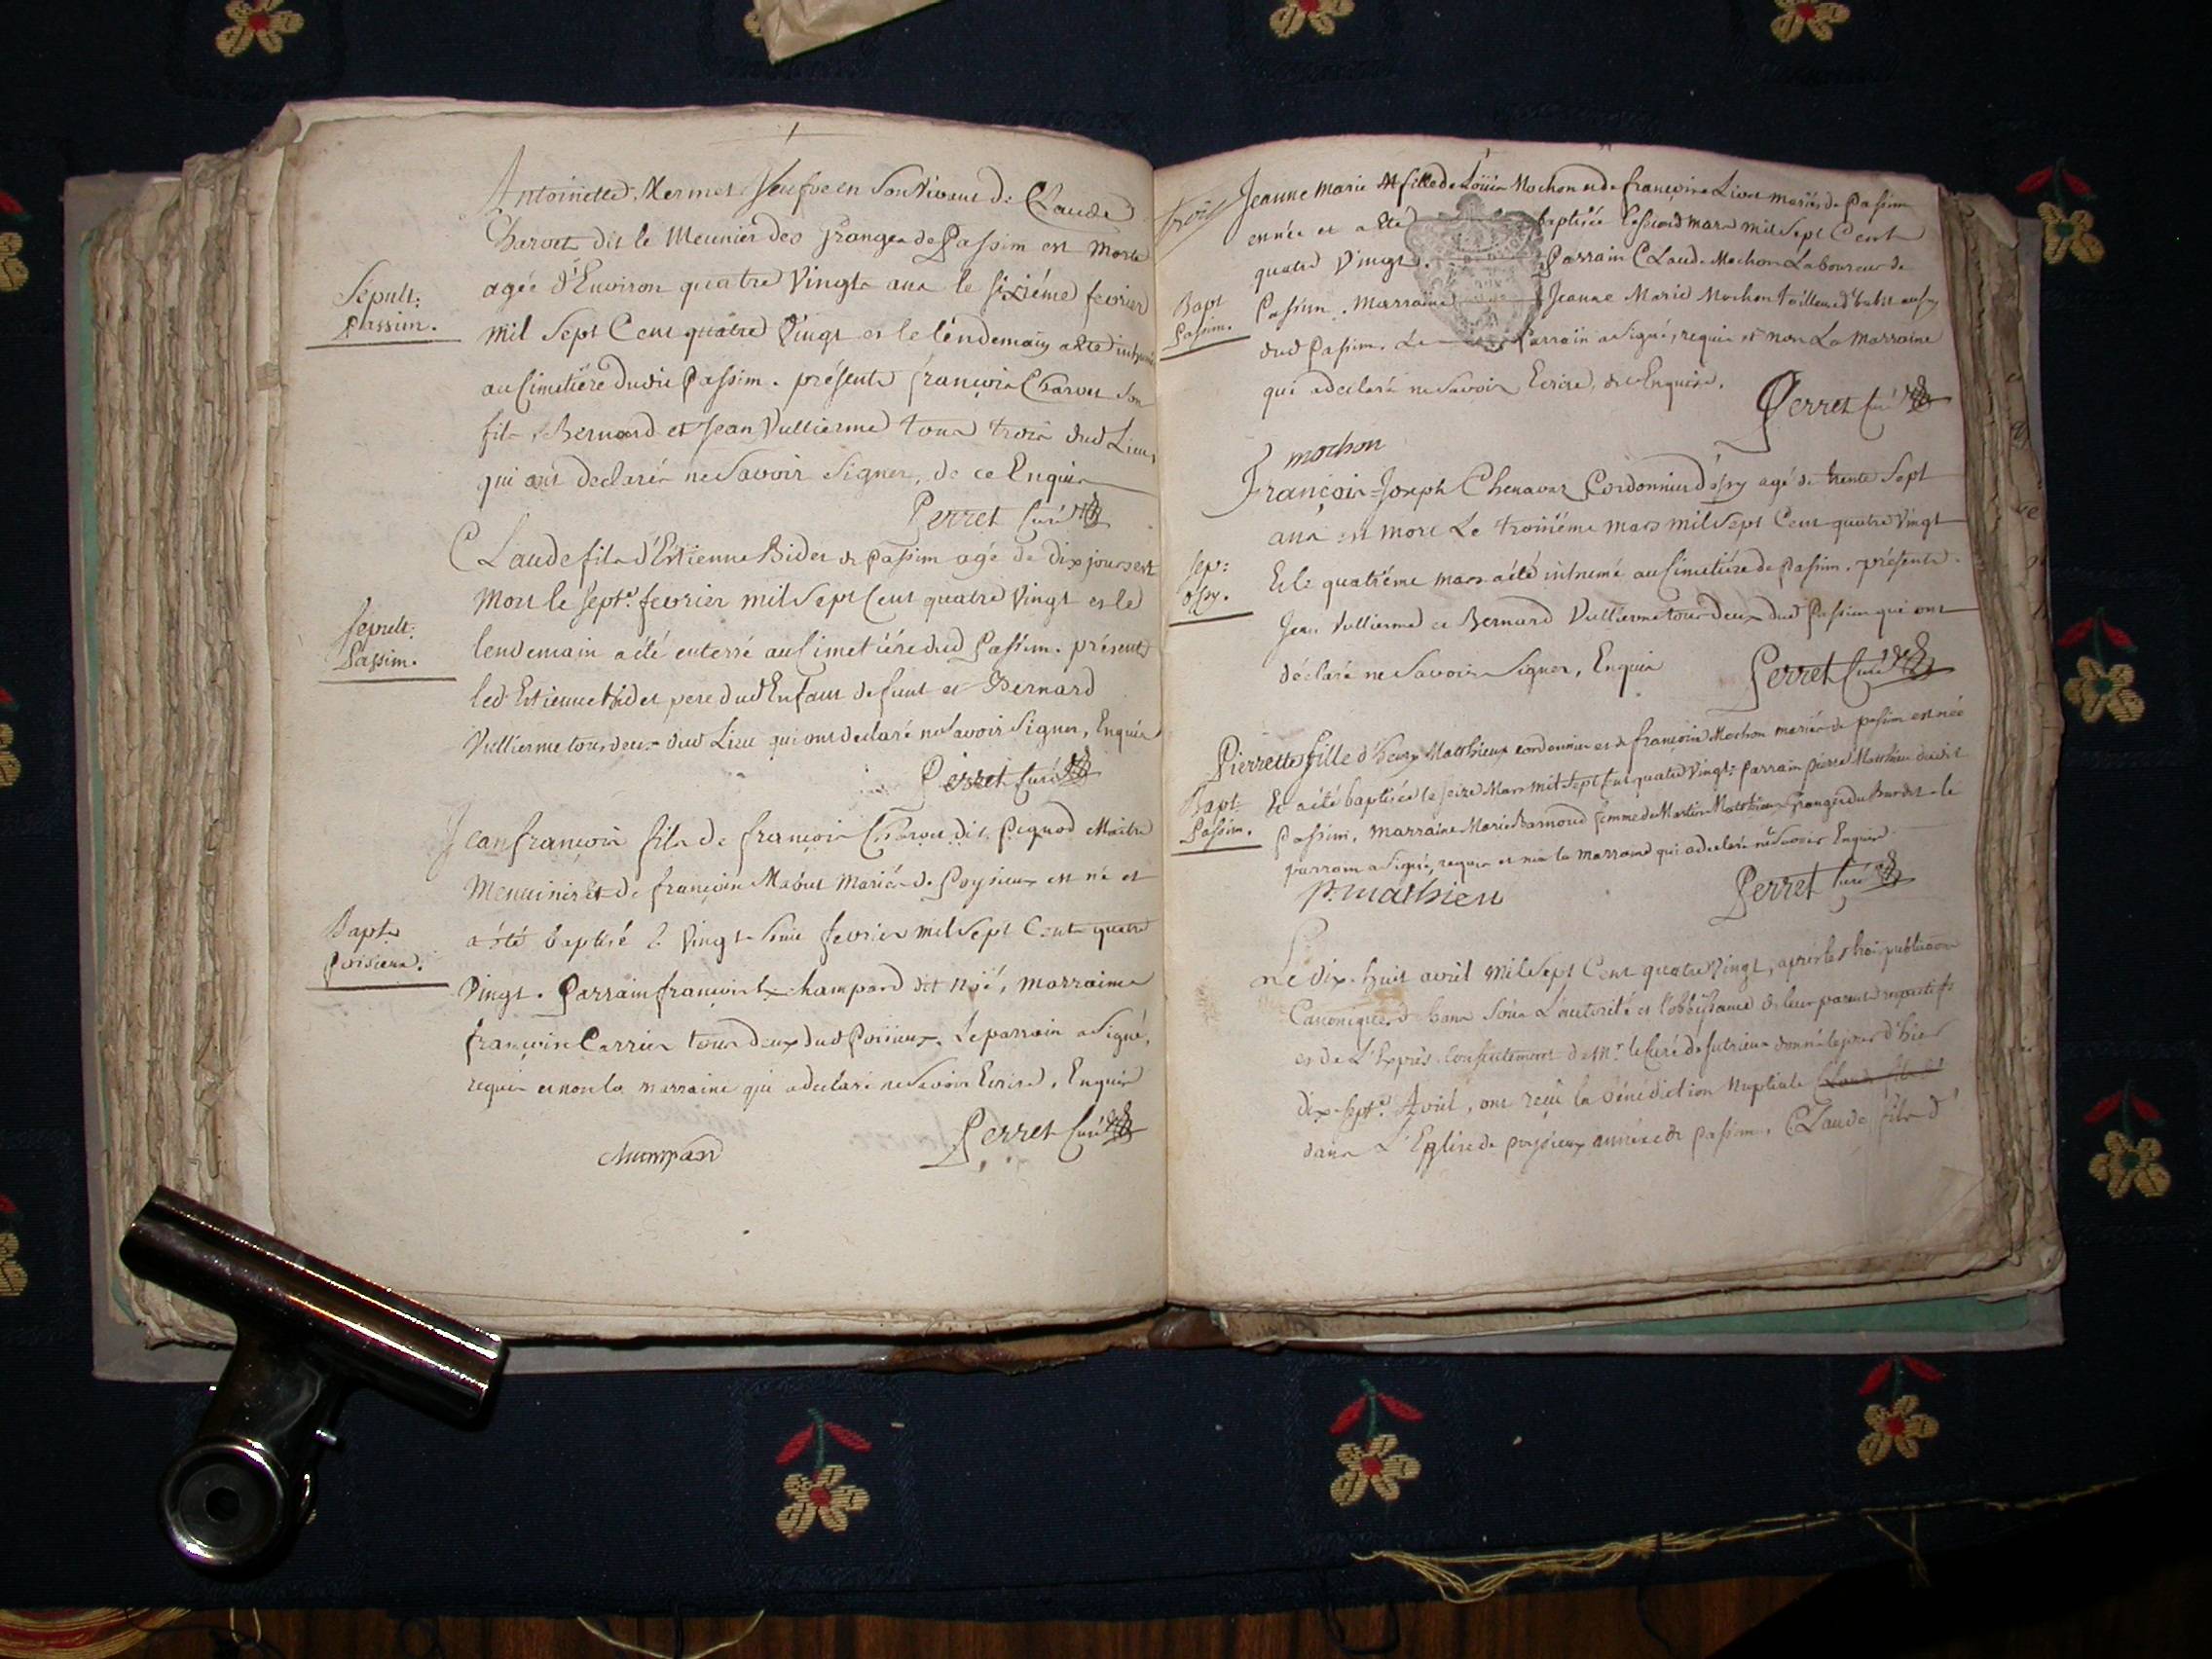 Antoinette Mermet Veufve en son vivant de Claude
Charvet dit le Meunier des Granges de Passim est morte
Sépult:
Passim.
agée d'Environ quatre Vingts ans le sixiéme fevrier
mil sept Cent quatre Vingt et le lendemain a été inhumée
au Cimetiére dudit Passim. présents françois Charvet son
fils, Bernard et Jean Vullierme tous trois dud Lieu,
qui ont declarés ne Savoir Signer, de ce Enquis
Perret Curé
Claude fils d'Estienne Bidet de Passim agé de dix jours est
Mort le sept.e fevrier mil Sept Cent quatre Vingt et le
Sepult:
Passim.
lendemain a été enterré au Cimetiére dud Passim. présents
led Estienne Bidet pere dud Enfant defunt et Bernard
Vullierme tous deux dud Lieu qui ont declaré ne Savoir Signer, Enquis
Perret Curé
Jean françois fils de françois dit Pequod Maitre
Menuisier et de françoise Mariés de Poysieux est né et
Bapt
Poisieux.
a été baptisé le Vingt fevrier mil Sept Cent quatre
Vingt. Parrain françois champard dit Noé, marraine
françoise Carrier tous deux dud Poisieux. Le parrain a Signé,
requis et non la marraine qui a declaré ne Savoir Ecrire, Enquise
Perret Curé
champard
trois
Jeanne Marie fille de Loüis Mochon et de françoise mariés de Passim
est née et a été baptisée le second mars mil Sept Cent
quatre Vingt. Parrain Claude Mochon Laboureur de
Bapt
Passim.
Passim. Marraine Jeanne Marie Mochon tailleuse d'habit aussy
dud Passim. Le Parrain a Signé, requis et non La Marraine
qui a declaré ne Savoir Ecrire, de ce Enquise.
Perret Curé
mochon
François-Joseph Chenavaz Cordonnier d'ossy agé de trente Sept
ans est mort Le troisiéme mars mil Sept Cent quatre Vingt
Sep:
ossy.
Et le quatriéme mars a été inhumé au Cimetiére de Passim. présents
Jean Vullierme et Bernard Vullierme tous deux dud Passim qui ont
déclaré ne Savoir Signer, Enquis
Perret Curé
Pierrette fille d'henry Matthieux cordonnier et de françoise Mochon mariés de passim est née
Bapt
Passim.
Et a été baptisée le seize Mars mil Sept Cent quatre Vingt. Parrain pierre Matthieu dudit
Passim, Marraine Marie Barnoud femme de Martin Matthieux Granger du Burdet. le
parrain a Signé, requis et non la marraine qui a declaré ne Savoir Enquise.
p. mathieu
Perret Curé
Le dix-huit avril Mil Sept Cent quatre Vingt, aprés les trois publications
Canoniques de bans sous L'autorité et l'obbeissance de leur parents respectifs
et de L'Exprès Consentement de Mr. le Curé de Sutrieux donné le jour d'hier
dix-sept.e Avril, ont reçu la bénédiction Nuptiale
dans L'Eglise de poysieux annéxe de passim, Claude fils d'